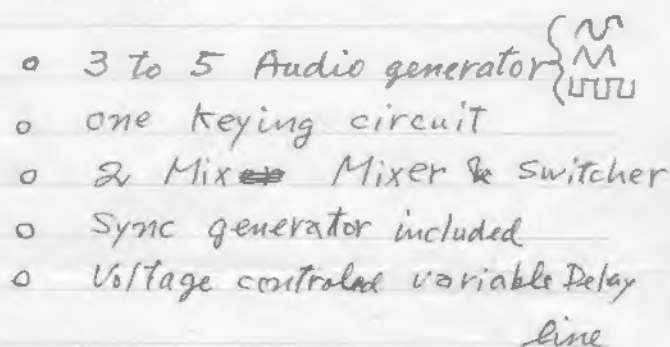 3 to 5 Audio generator
one Keying circuit
2 Mixer & Switcher
Sync generator included
Voltage controled variable Delay
line